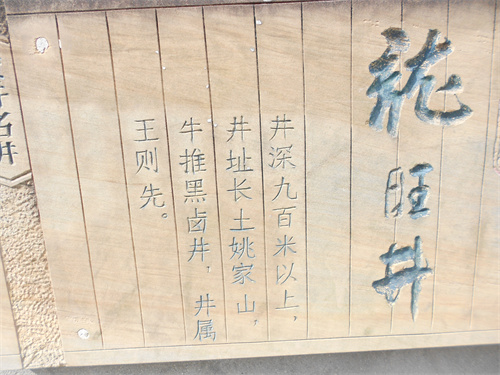 龙旺井
井深九百米以上，
井址长土姚家山，
牛推黑卤井，井属
王则先。
名井